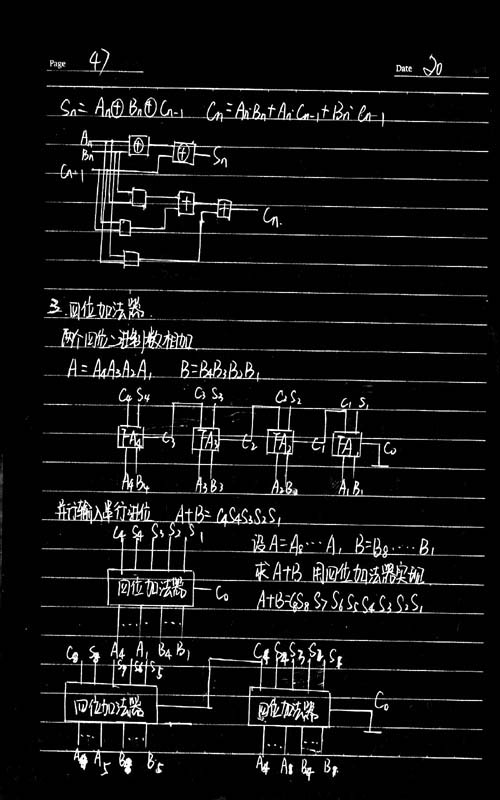 Page 47 Date 20
Sn = An⊕Bn⊕Cn-1 Cn = An·Bn+An·Cn-1+Bn·Cn-1
An
Bn
Cn-1
⊕ ⊕ Sn
+ + Cn
三.四位加法器
两个四位二进制数相加
A = A4A3A2A1 B = B4B3B2B1
C4 S4 C3 S3 C2 S2 C1 S1
FA4 C3 FA3 C2 FA2 C1 FA1 C0
A4 B4 A3 B3 A2 B2 A1 B1
并行输入串行进位 A+B = C4S4S3S2S1
C4 S4 S3 S2 S1
设A=A8···A1 B=B8····B1
求A+B 用四位加法器实现
四位加法器 C0
A+B=C8S8S7S6S5S4S3S2S1
A4 A1 B4 B1
C8 S8 S7 S6 S5
C4 S4 S3 S2
四位加法器 四位加法器 C0
A5 B5
A4 B4